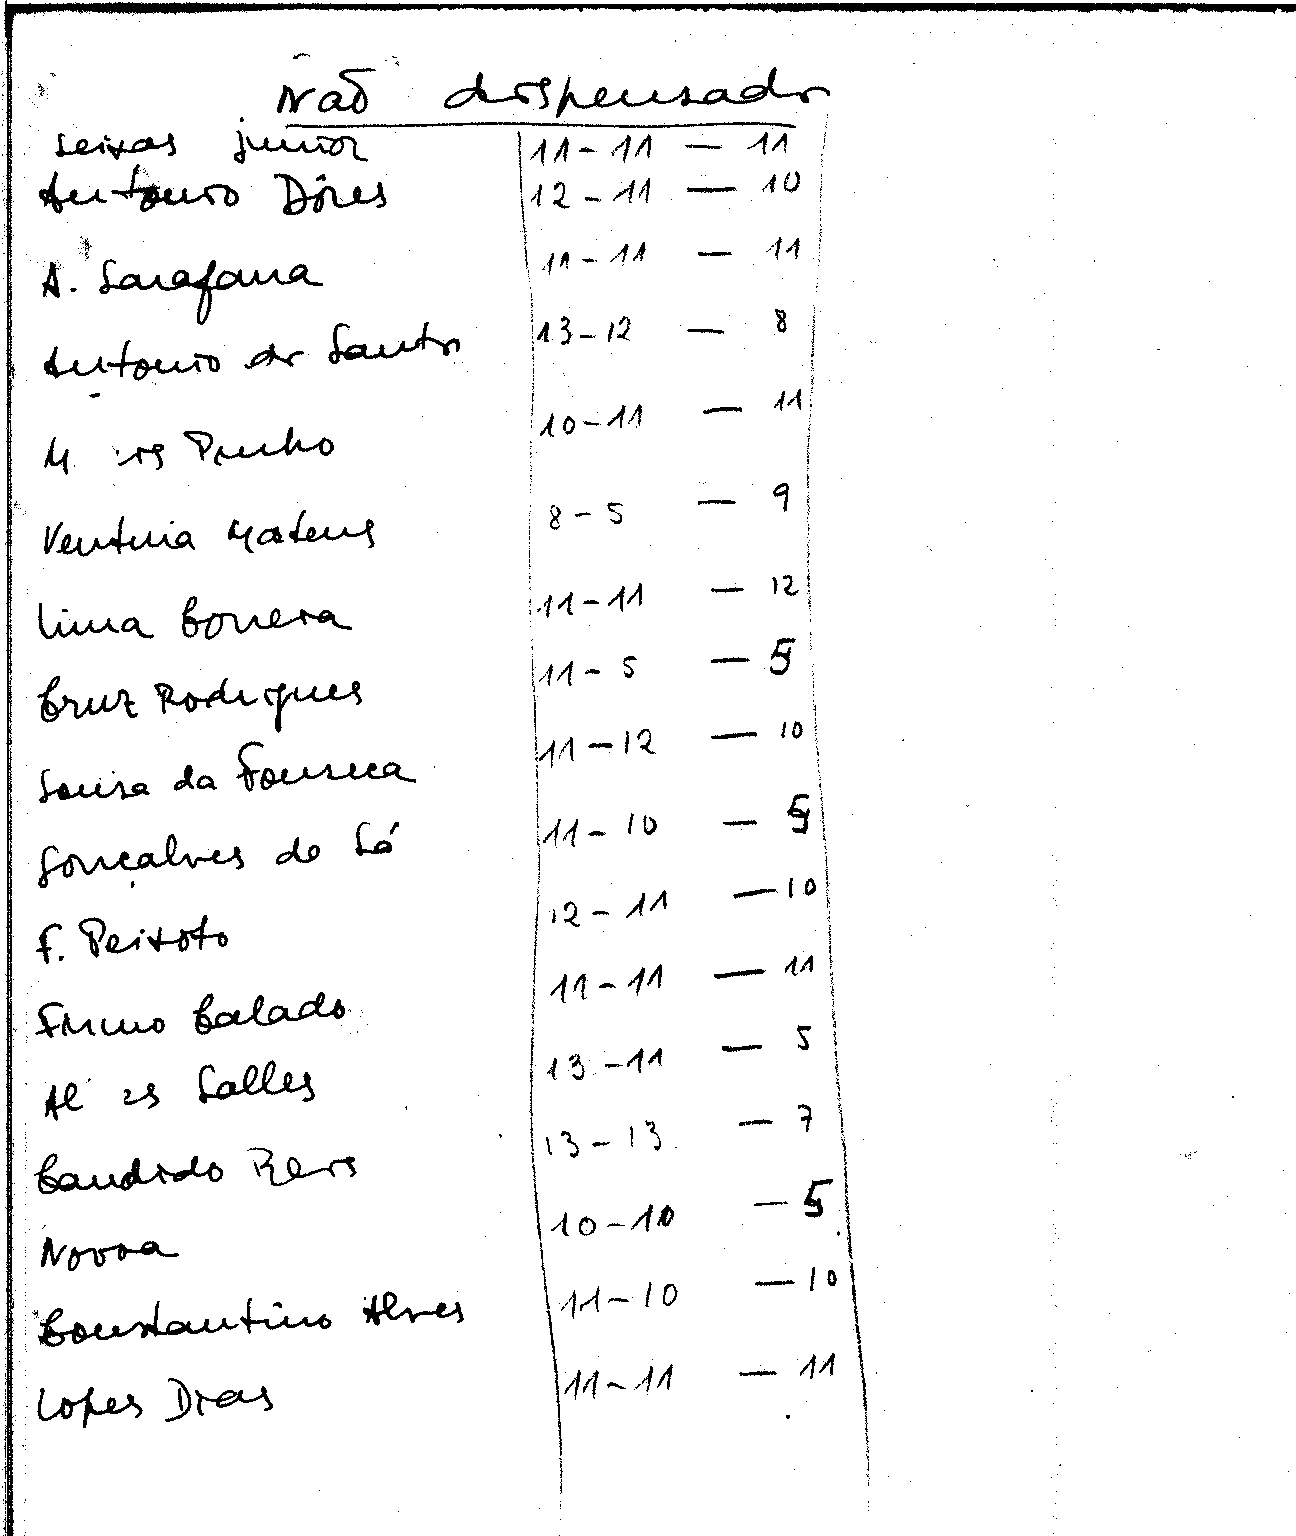 Não dispensados
Seixas Junior 11-11 — 11
Antonio Dôres 12-11 — 10
A. Sarafana 11-11 — 11
Antonio dos Santos 13-12 — 8
M Pinho 10-11 — 11
Ventura Mateus 8-5 — 9
Lima Correia 11-11 — 12
Cruz Rodrigues 11-5 — 5
Sousa da Fonseca 11-12 — 10
Gonçalves de Sá 11-10 — 5
F. Peixoto 12-11 — 10
Firmo Calado 11-11 — 11
Salles 13-11 — 5
Candido Reis 13-13 — 7
Novoa 10-10 — 5
Constantino Alves 11-10 — 10
Lopes Dias 11-11 — 11